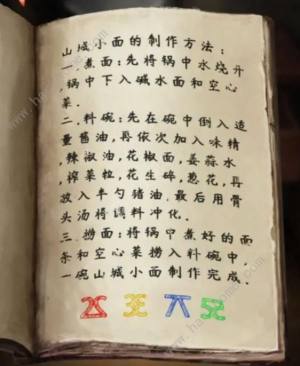 山城小面的制作方法:
一.煮面:先将锅中水烧开
,锅中下入碱水面和空心
菜.
二.料碗:先在碗中倒入适
量酱油,再依次加入味精
,辣椒油,花椒面,姜蒜水
,榨菜粒,花生碎,葱花,再
放入半勺猪油.最后用骨
头汤将调料冲化.
三.捞面:将锅中煮好的面
条和空心菜捞入料碗中,
一碗山城小面制作完成.